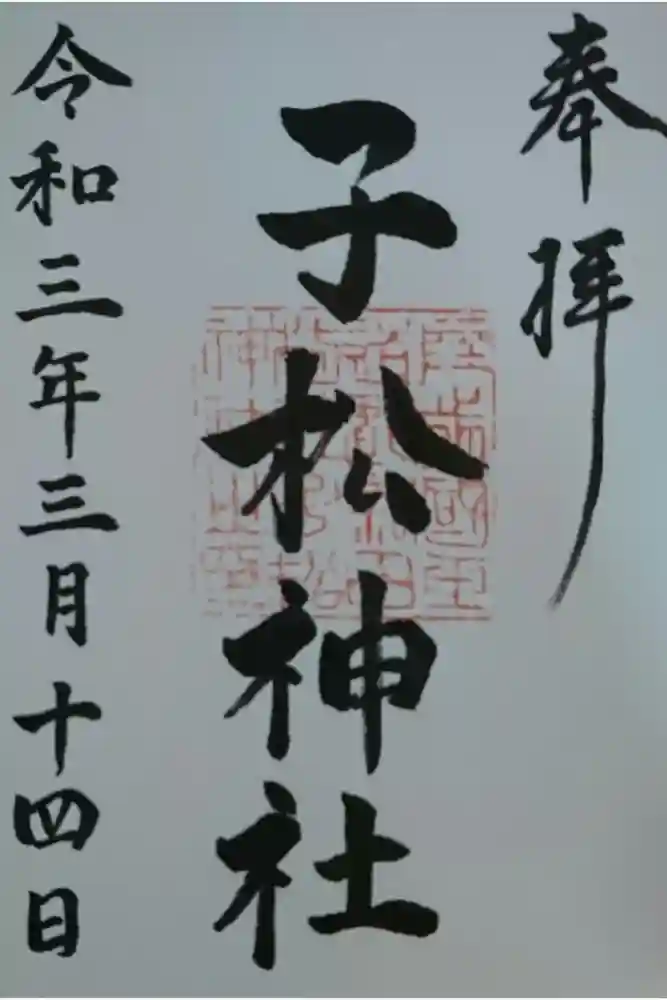 奉拝
子松神社
令和三年三月十四日